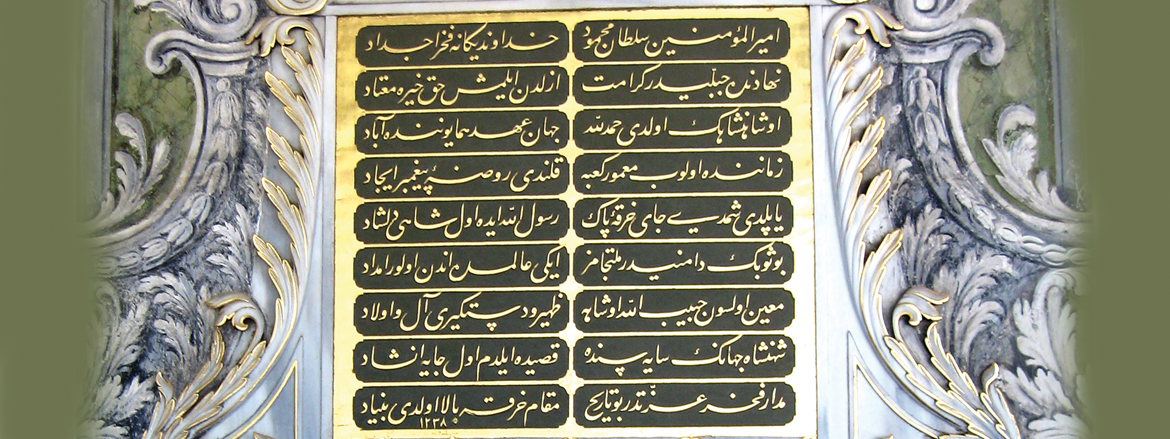 امیر المؤمنین سلطان محمود خداوند یگانه فخر اجداد
نهادنده جبلیدر كرامت ازلدن ایلمش حق خیره معتاد
او شاهنشاهك اولدی حمدلله جهان عهد همایوننده آباد
زماننده اولوب معمور كعبه قلندی روضۀ پیغمبر ایجاد
یاپلدی شمدی جای خرقۀ پاك رسول الله ایده اول شاهی دلشاد
بو ثوبك دامنیدر ملتجامز ایكی عالمده اندن اولور امداد
معین اولسون حبیب الله او شاهه ظهیر و دستگیری آل و اولاد
شهنشاه جهانك سایه سنده قصیده ایلدم اول جایه انشاد
مدار فخر عزّتدر بو تاریخ مقام خرقه بالا اولدی بنیاد
١٢٣٨